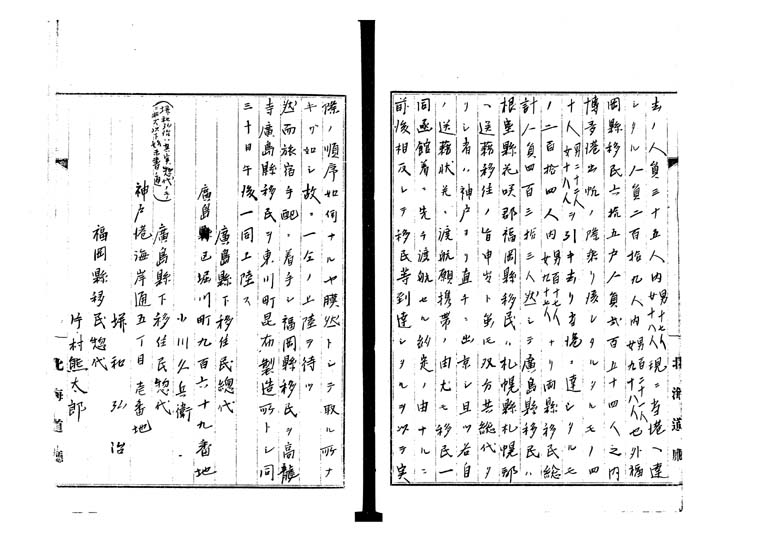 去ノ人員三十五人内男十七人女十八人現ニ当港ヘ達
シタル人員二百拾九人内男百二十一人女九十八人也外福
岡縣移民六拾五戸人員弐百五十四人之内
博多港出帆ノ際乗リ後レタルモノ四
十人男二十二人女十八人ヲ引キ去リ当港ニ達シタルモ
ノ二百拾四人内男百十七人女九十七人ナリ両縣移民総
計人員四百三拾三人然シテ廣島縣移民ハ
根室縣花咲郡福岡縣移民ハ札幌縣札幌郡
ヘ送籍移住ノ旨申出ト雖ﾓ双方共総代タ
リシ者ハ神戸ヨリ直チニ出京シ且ツ各自
ノ送籍状元ヘ渡航願携帯ノ由尤モ移民一
同函館着ノ先キ渡航セル約定ノ由ナルニ
前後相反シテ移民等到達シタルヲ以テ実
北海道廳
際ノ順序如何ナルヤ瞭然トシテ取ル所ナ
キガ如シ故ニ一ト先ノ上陸ヲ待ツ
然而旅宿手配ニ着手シ福岡縣移民ヲ高龍
寺廣島縣移民ヲ東川町昆布製造所トシ同
三十日午後一同上陸ス
廣島縣下移住民総代
廣島縣已堀川町九百六十九番地
小川久兵衛
廣島縣下移住民惣代
神戸港海岸通五丁目壱番地
垪和弘治
福岡縣移民惣代
片村熊太郎
北海道廳